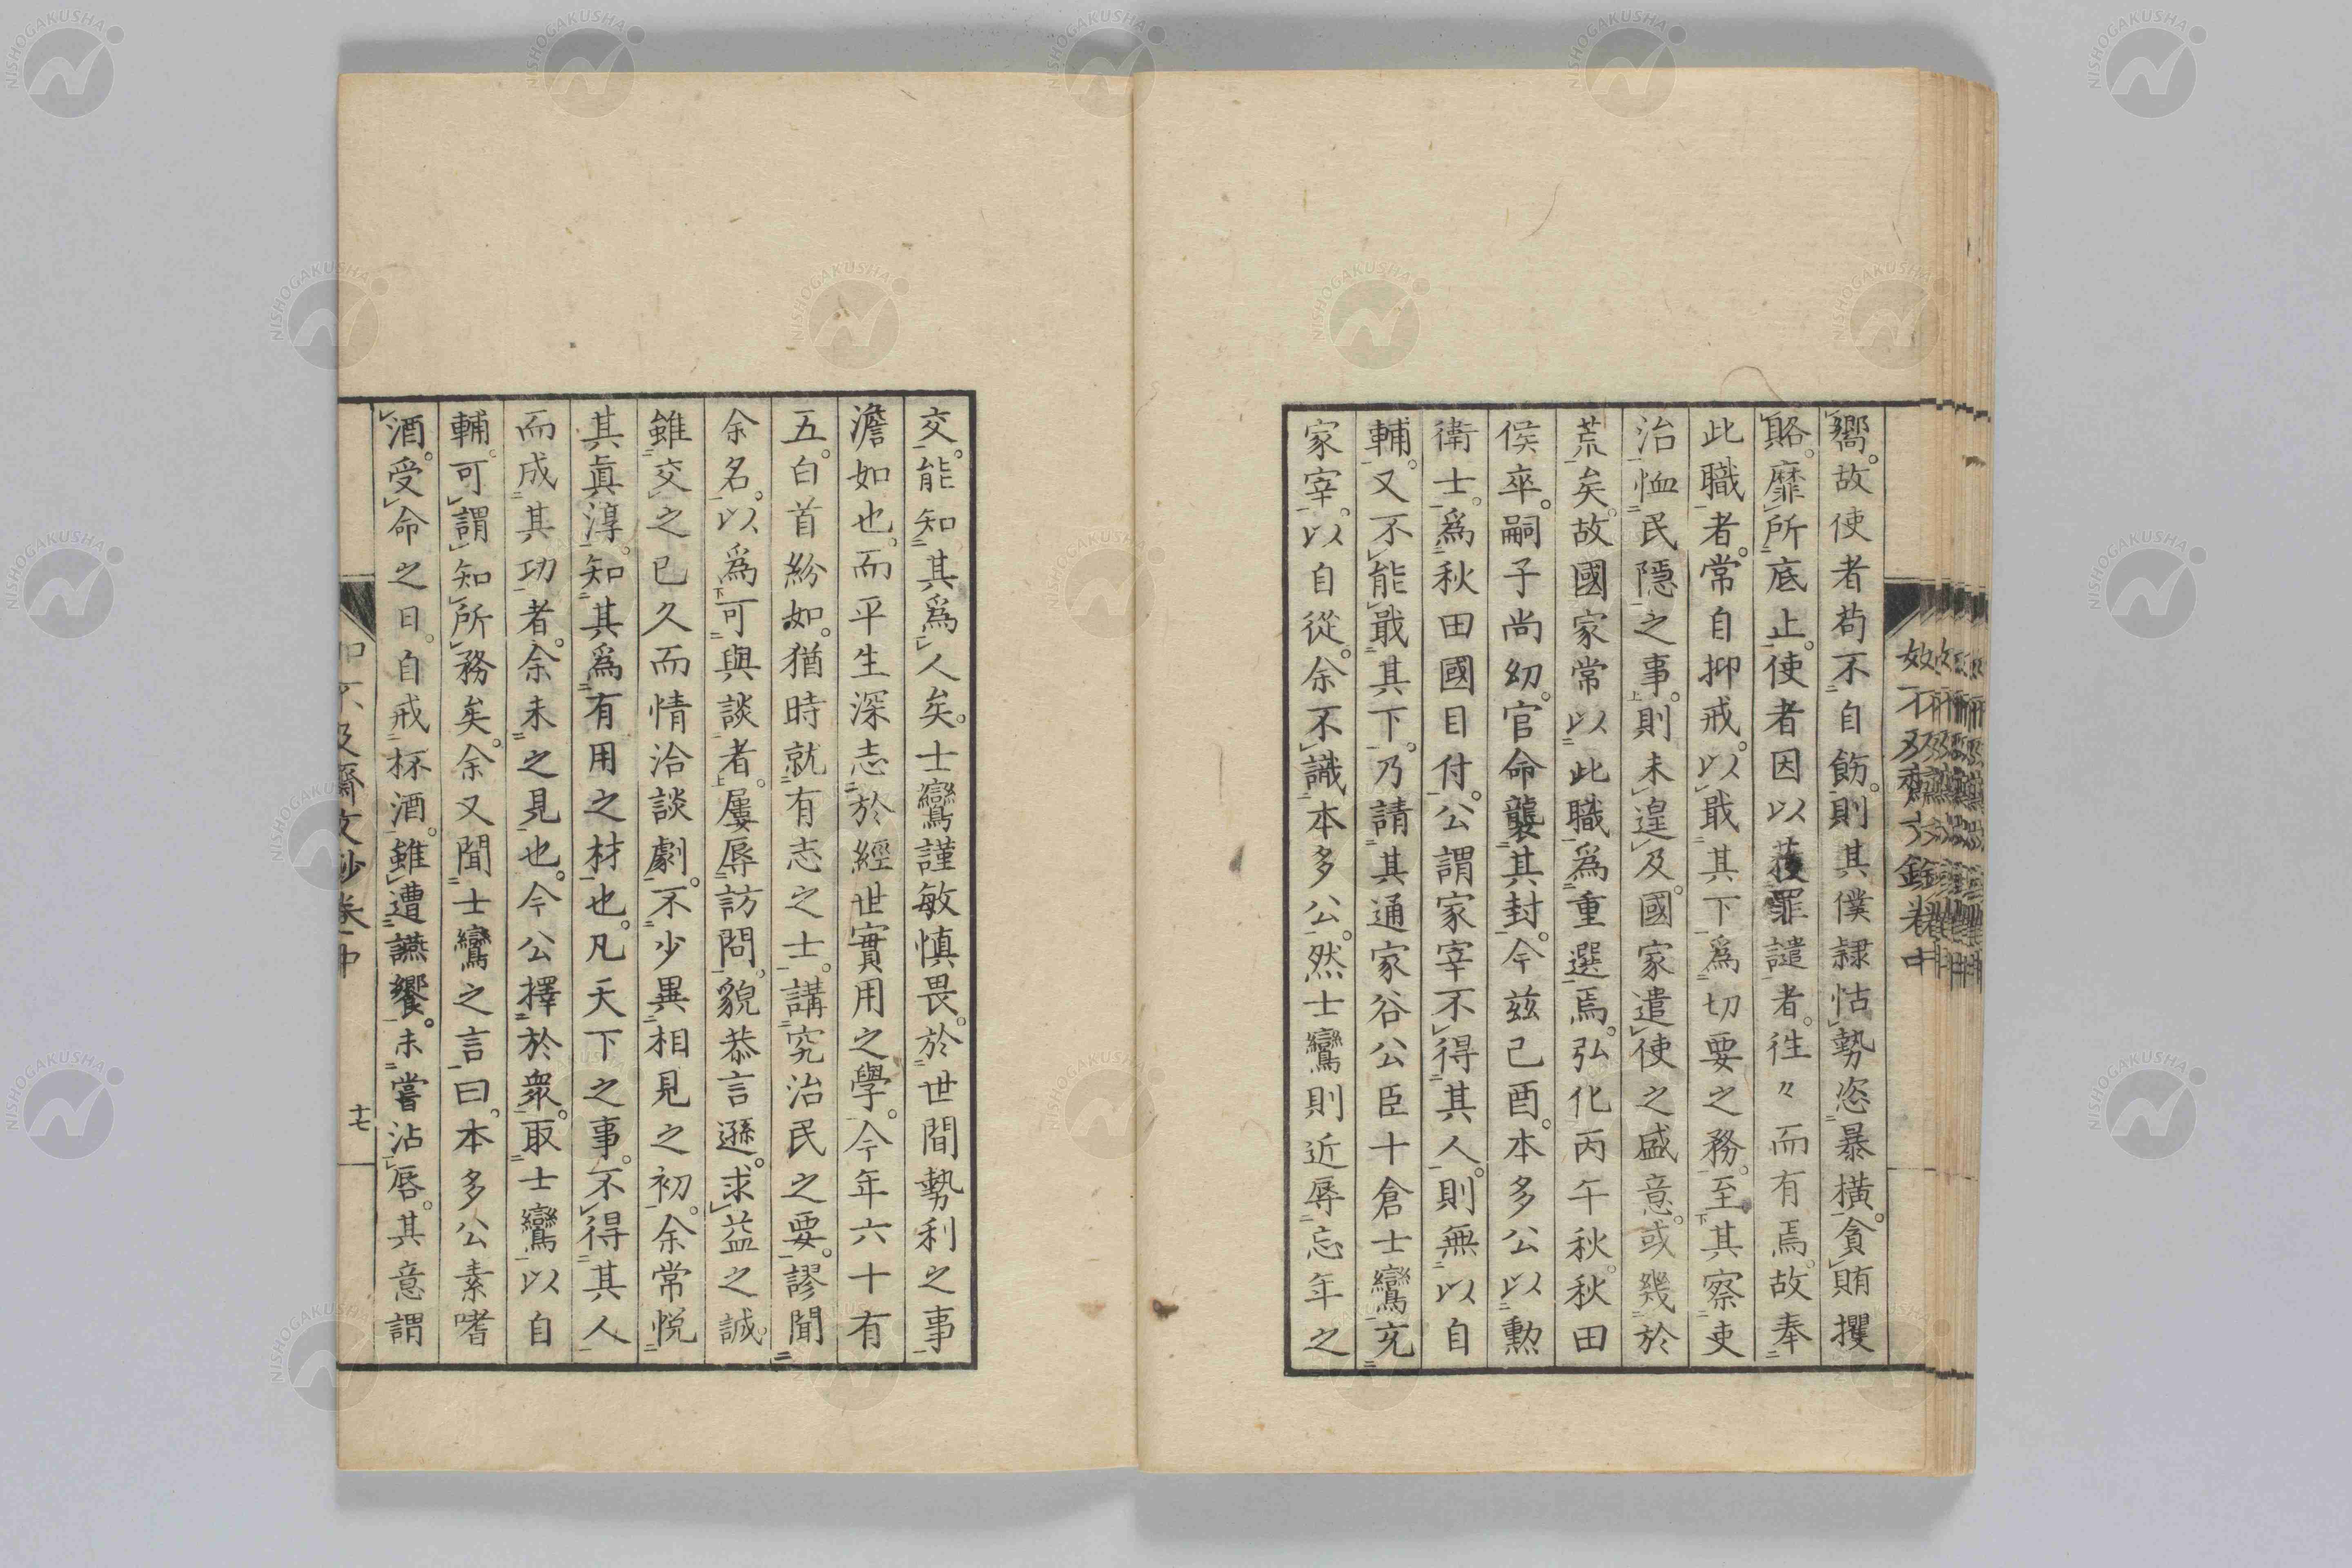 嚮。故使者苟不自飭。則其僕隷怙勢恣暴横。貪賄攫
賂。靡所底止。使者因以獲罪譴者。徃々而有焉。故奉
此職者。常自抑戒。以戢其下。爲切要之務。至其察吏
治恤民隱之事。則未遑及。國家遣使之盛意。或幾於
荒矣。故國家常以此職爲重選焉。弘化丙午秋。秋田
侯卒。嗣子尚幼。官命襲其封。今茲己酉。本多公以勲
衛士。爲秋田國目付。公謂家宰不得其人。則無以自
輔。又不能戢其下。乃請其通家谷公臣十倉士鸞充
家宰。以自從。余不識本多公。然士鸞則近辱忘年之
交。能知其爲人矣。士鸞謹敏慎畏。於世間勢利之事
澹如也。而平生深志於經世實用之學。今年六十有
五。白首紛如。猶時就有志之士。講究治民之要。謬聞
余名。以爲可與談者。屢辱訪問。貌恭言遜。求益之誠。
雖交之已久而情洽談劇。不少異相見之初。余常悦
其眞淳。知其爲有用之材也。凡天下之事。不得其人
而成其功者。余未之見也。今公擇於衆。取士鸞以自
輔。可謂知所務矣。余又聞士鸞之言曰。本多公素嗜
酒。受命之日。自戒杯酒。雖遭讌饗。未嘗沾唇。其意謂
如不及齋文鈔卷中
十七
NISHOGAKUSHA